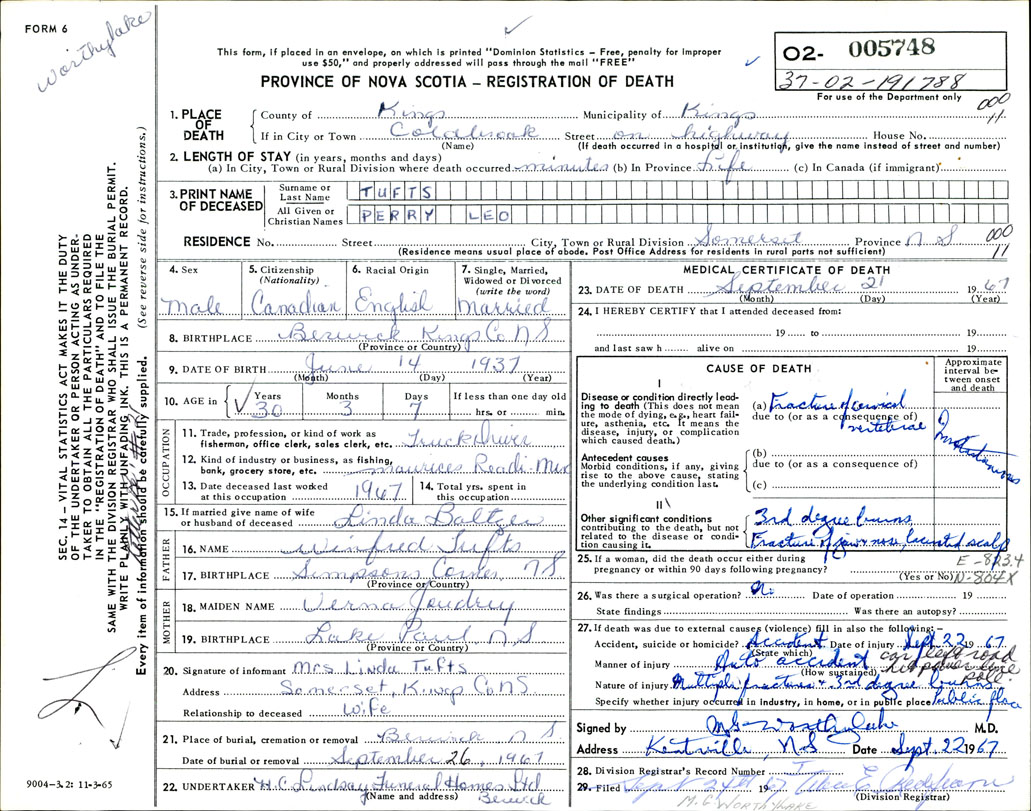 FORM 6
Worthylake
This form, if placed in an envelope, on which is printed "Dominion Statistics – Free, penalty for improper
use $50," and properly addressed will pass through the mail "FREE"
PROVINCE OF NOVA SCOTIA – REGISTRATION OF DEATH
02- 005748
37-02-191788
For use of the Department only
000
11
SEC. 14 – VITAL STATISTICS ACT MAKES IT THE DUTY
OF THE UNDERTAKER OR PERSON ACTING AS UNDER-
TAKER TO OBTAIN ALL THE PARTICULARS REQUIRED
IN THE "REGISTRATION OF DEATH" AND TO FILE THE
SAME WITH THE DIVISION REGISTRAR WHO SHALL ISSUE THE BURIAL PERMIT.
WRITE PLAINLY WITH UNFADING INK. THIS IS A PERMANENT RECORD.
Every item of information should be carefully supplied. (See reverse side for instructions.)
1. PLACE OF DEATH
County of Kings Municipality of Kings
If in City or Town Coldbrook Street on highway House No.
(Name) (If death occurred in a hospital or institution, give the name instead of street and number)
2. LENGTH OF STAY (in years, months and days)
(a) In City, Town or Rural Division where death occurred minutes (b) In Province Life (c) In Canada (if immigrant)
3. PRINT NAME OF DECEASED
Surname or Last Name TUFTS
All Given or Christian Names PERRY LEO
RESIDENCE No. Street City, Town or Rural Division Somerset Province N S 000
11
(Residence means usual place of abode. Post Office Address for residents in rural parts not sufficient)
4. Sex
Male
5. Citizenship
(Nationality)
Canadian
6. Racial Origin
English
7. Single, Married, Widowed or Divorced
(write the word)
Married
8. BIRTHPLACE Berwick Kings Co N S
(Province or Country)
9. DATE OF BIRTH June 14 1937
(Month) (Day) (Year)
10. AGE in Years Months Days If less than one day old
30 3 7 hrs. or min.
OCCUPATION
11. Trade, profession, or kind of work as fisherman, office clerk, sales clerk, etc. Truck Driver
12. Kind of industry or business, as fishing, bank, grocery store, etc. Maurices Readi-Mix
13. Date deceased last worked at this occupation 1967
14. Total yrs. spent in this occupation
15. If married give name of wife or husband of deceased Linda Baltzer
FATHER
16. NAME Winfred Tufts
17. BIRTHPLACE Simpsons Corner, N S
(Province or Country)
MOTHER
18. MAIDEN NAME Verna Joudrey
19. BIRTHPLACE Lake Paul N S
(Province or Country)
20. Signature of informant Mrs Linda Tufts
Address Somerset, Kings Co N S
Relationship to deceased Wife
21. Place of burial, cremation or removal Berwick N S
Date of burial or removal September 26, 1967
22. UNDERTAKER H.C. Lindsay Funeral Homes Ltd
(Name and address) Berwick
MEDICAL CERTIFICATE OF DEATH
23. DATE OF DEATH September 21 1967
(Month) (Day) (Year)
24. I HEREBY CERTIFY that I attended deceased from:
19 to 19
and last saw h alive on 19
CAUSE OF DEATH
Approximate interval between onset and death
I
Disease or condition directly leading to death (This does not mean the mode of dying, e.g., heart failure, asthenia, etc. It means the disease, injury, or complication which caused death.)
(a) Fracture of cervical
due to (or as a consequence of)
vertebrae
Instantaneous
Antecedent causes
Morbid conditions, if any, giving rise to the above cause, stating the underlying condition last.
(b)
due to (or as a consequence of)
(c)
II
Other significant conditions
contributing to the death, but not related to the disease or condition causing it.
3rd degree burns
Fracture of jaw & nose, lacerated scalp
25. If a woman, did the death occur either during pregnancy or within 90 days following pregnancy?
(Yes or No)
E-823.4
N-804X
26. Was there a surgical operation? No Date of operation 19
State findings Was there an autopsy?
27. If death was due to external causes (violence) fill in also the following:–
Accident, suicide or homicide? Accident Date of injury Sept 22 1967
(State which)
Manner of injury Auto accident car left road
hit power line pole
(How sustained)
Nature of injury Multiple fractures & 3rd degree burns
Specify whether injury occurred in industry, in home, or in public place Public place
Signed by M.D.
Address Kentville, N S Date Sept. 22 1967
28. Division Registrar's Record Number
29. Filed Sept 24th 1967
(Division Registrar)
M.G WORTHYLAKE
9004-3.2: 11-3-65